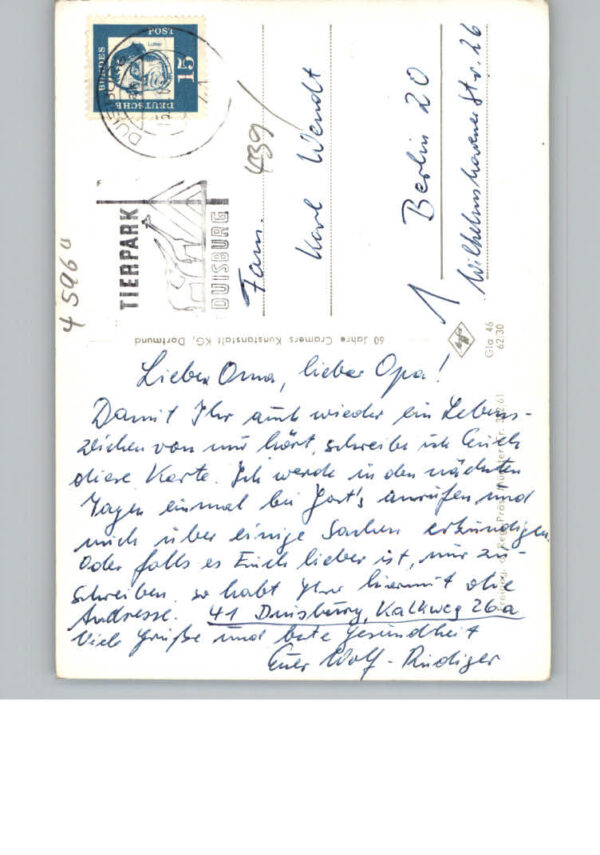 DEUTSCHE
BUNDES
POST
15
Luther
DUISBURG
TIERPARK
DUISBURG
4 5960
439/
Fam.
Karl Wendt
1 Berlin 20
Wilhelmshavener Str. 26
60 Jahre Cramers Kunstanstalt KG, Dortmund
Gla 46
62.30
Liebe Oma, lieber Opa!
Damit Ihr auch wieder ein Lebens-
zeichen von mir hört, schreibe ich Euch
diese Karte. Ich werde in den nächsten
Tagen einmal bei Horst's anrufen und
mich über einige Sachen erkundigen.
Oder falls es Euch lieber ist, mir zu-
schreiben, so habt Ihr hiermit die
Andresse. 41 Duisburg, Kalkweg 26a
Viele Grüße und beste Gesundheit
Euer Wolf-Rüdiger